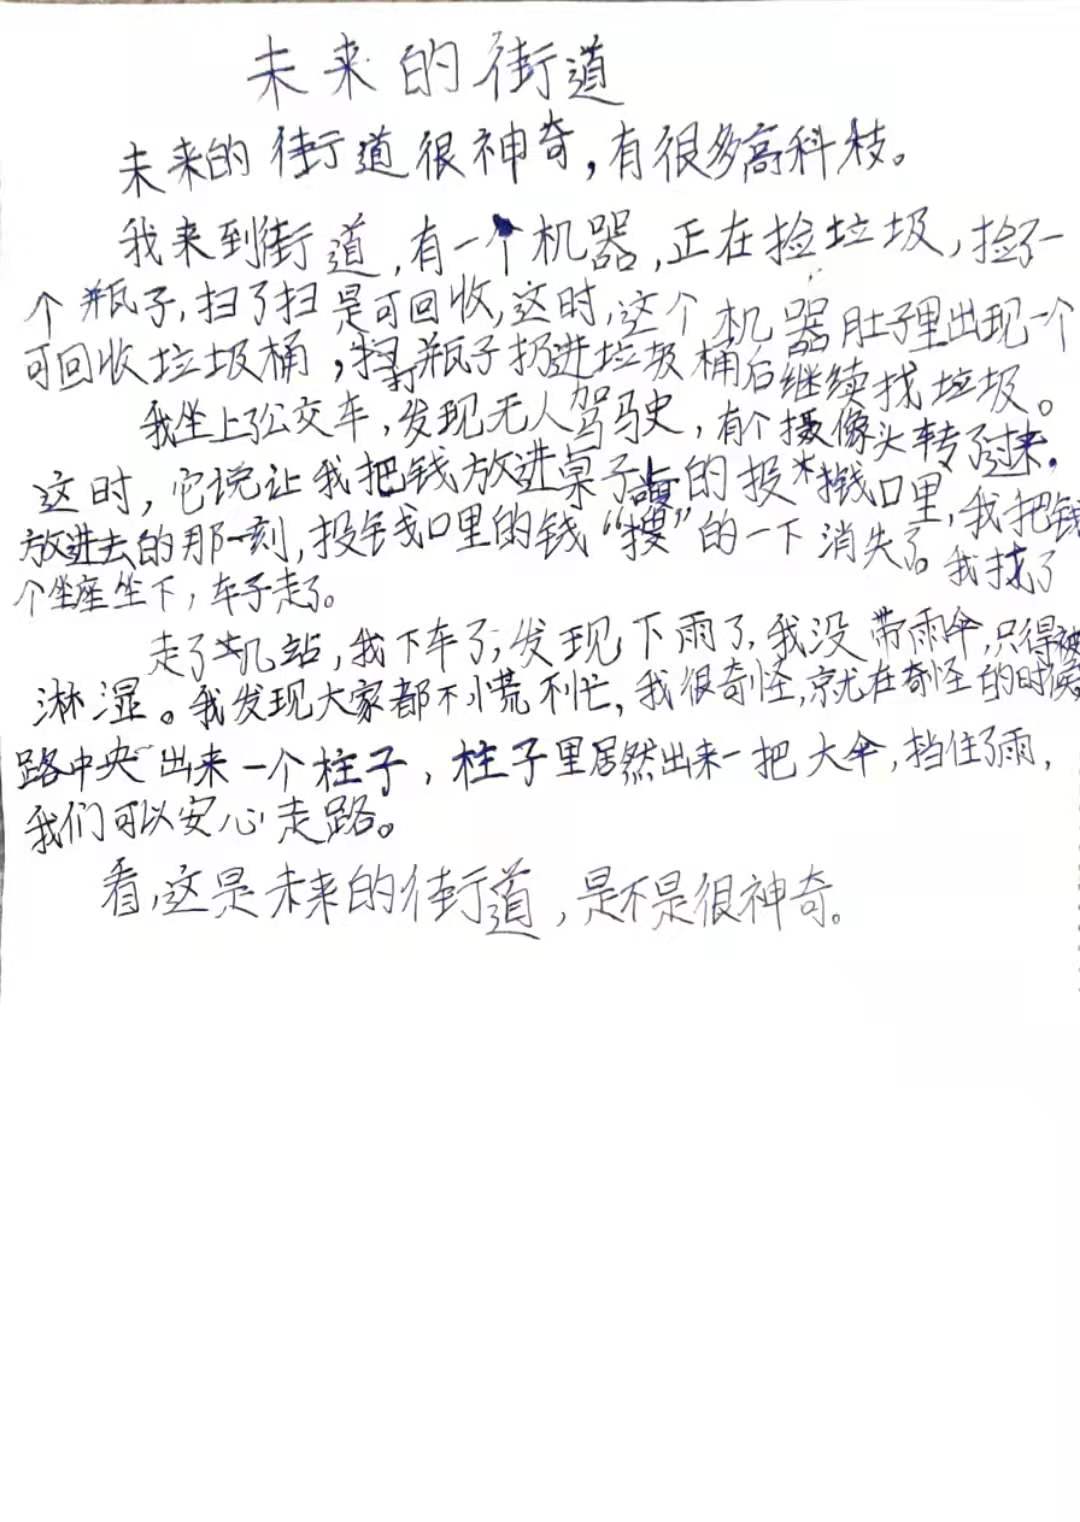 未来的街道
未来的街道很神奇,有很多高科枝。
我来到街道,有一个机器,正在捡垃圾,捡了一
个瓶子,扫了扫是可回收,这时,这个机器肚子里出现一个
可回收垃圾桶,瓶子扔进垃圾桶后继续找垃圾。
我坐上了公交车,发现无人驾马史,有个摄像头转了过来.
这时,它说让我把钱放进桌子上的投钱口里,我把钱
放进去的那一刻,投钱口里的钱“搜”的一下消失了。我找了
个坐座坐下,车子走了。
走了几站,我下车了,发现下雨了,我没带雨伞,只得被
淋湿。我发现大家都不慌不忙,我很奇怪,京尤在奇怪的时候
路中央出来一个柱子,柱子里居然出来一把大伞,挡住了雨,
我们可以安心走路。
看,这是未来的街道,是不是很神奇。